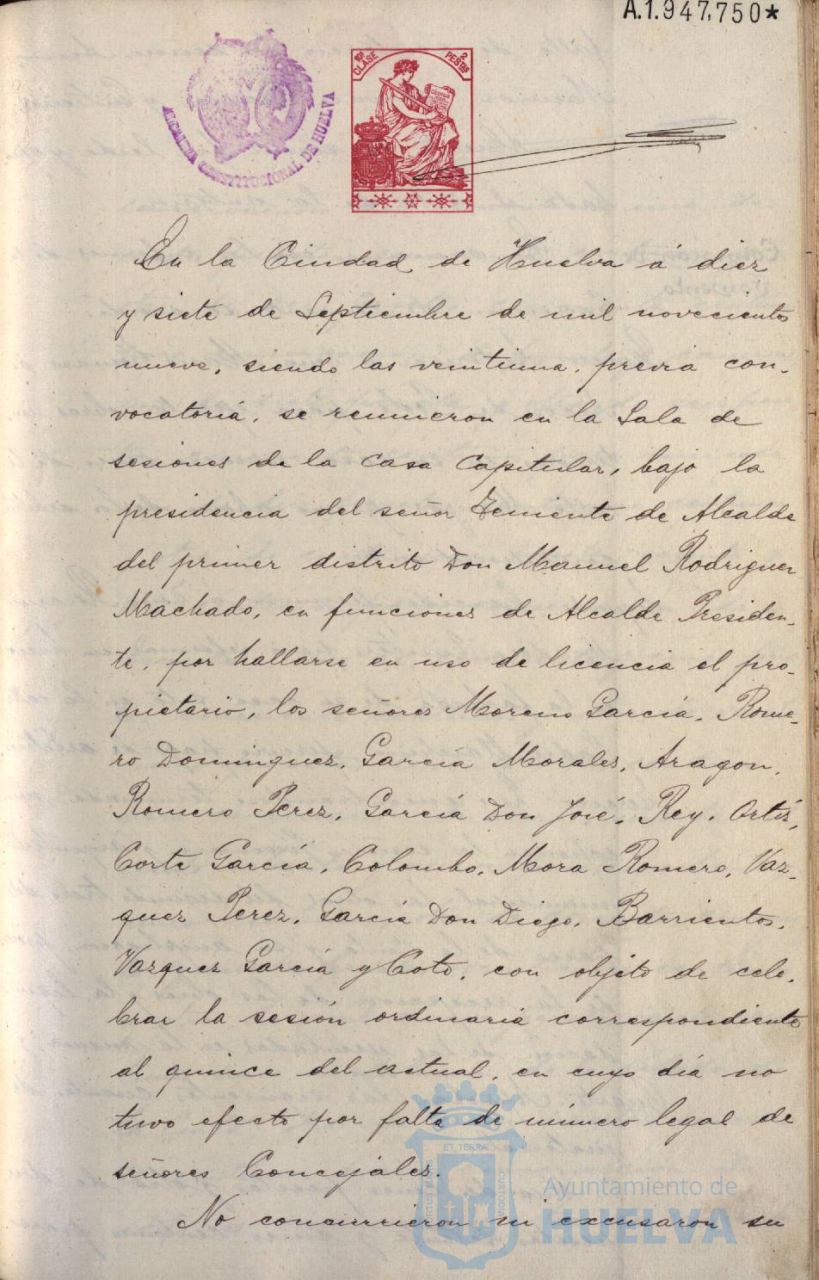 A.1.947,750*
10ª CLASE 2 PESTAS
ALCALDIA CONSTITUCIONAL DE HUELVA
En la Ciudad de Huelva á diez
y siete de Septiembre de mil novecientos
nueve, siendo las veintiuna, previa con-
vocatoria, se reunieron en la Sala de
sesiones de la Casa Capitular, bajo la
presidencia del señor Teniente de Alcalde
del primer distrito Don Manuel Rodriguez
Machado, en funciones de Alcalde Presiden-
te, por hallarse en uso de licencia el pro-
pietario, los señores Moreno García, Rome-
ro Dominguez, García Morales, Aragon,
Romero Perez, García Don José, Rey, Ortiz,
Corte García, Colombo, Mora Romero, Vaz-
quez Perez, García Don Diego, Barrientos,
Vazquez García y Coto, con objeto de cele-
brar la sesión ordinaria correspondiente
al quince del actual, en cuyo día no
tuvo efecto por falta de número legal de
señores Concejales.
No concurrieron ni excusaron su
Ayuntamiento de
HUELVA